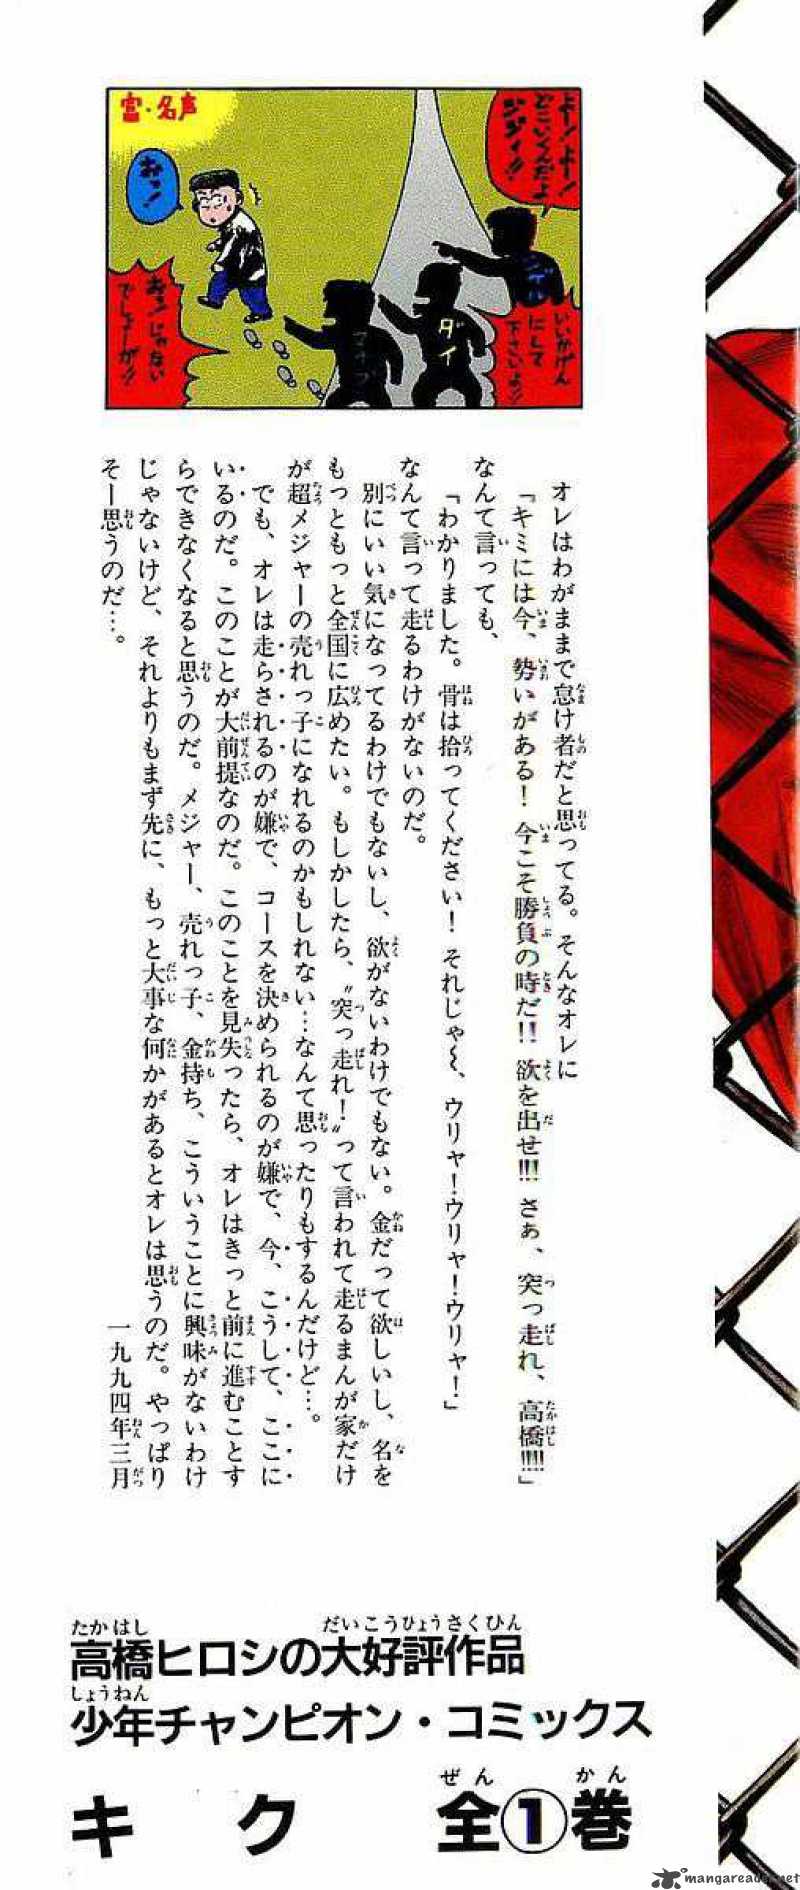 富・名声
よー!よー!
どこいくんだよ
ジジイ!!
おっ!
おっ!じゃない
でしょーが!!
いいかげん
にして
下さいよ!!
ダイ
オレはわがままで怠け者だと思ってる。そんなオレに
「キミには今、勢いがある! 今こそ勝負の時だ!! 欲を出せ!!! さぁ、突っ走れ、高橋!!!!」
なんて言っても、
「わかりました。骨は拾ってください! それじゃ〜、ウリャ!ウリャ!ウリャ!」
なんて言って走るわけがないのだ。
別にいい気になってるわけでもないし、欲がないわけでもない。金だって欲しいし、名を
もっともっと全国に広めたい。もしかしたら、〝突っ走れ!〟って言われて走るまんが家だけ
が超メジャーの売れっ子になれるのかもしれない…なんて思ったりもするんだけど…。
でも、オレは走らされるのが嫌で、コースを決められるのが嫌で、今、こうして、ここに
いるのだ。このことが大前提なのだ。このことを見失ったら、オレはきっと前に進むことす
らできなくなると思うのだ。メジャー、売れっ子、金持ち、こういうことに興味がないわけ
じゃないけど、それよりもまず先に、もっと大事な何かがあるとオレは思うのだ。やっぱり
そー思うのだ…。
一九九四年三月
高橋ヒロシの大好評作品
少年チャンピオン・コミックス
キク 全①巻
mangareader.net